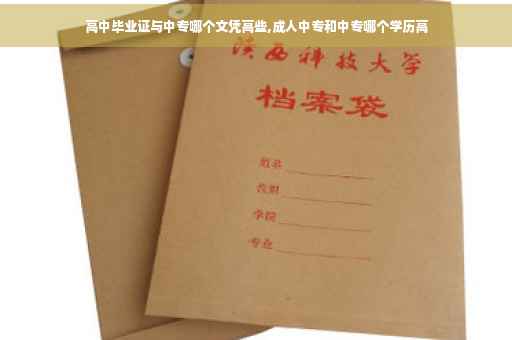 高中毕业证与中专哪个文凭高些,成人中专和中专哪个学历高
陕西科技大学
档案袋
姓名
学院
专业